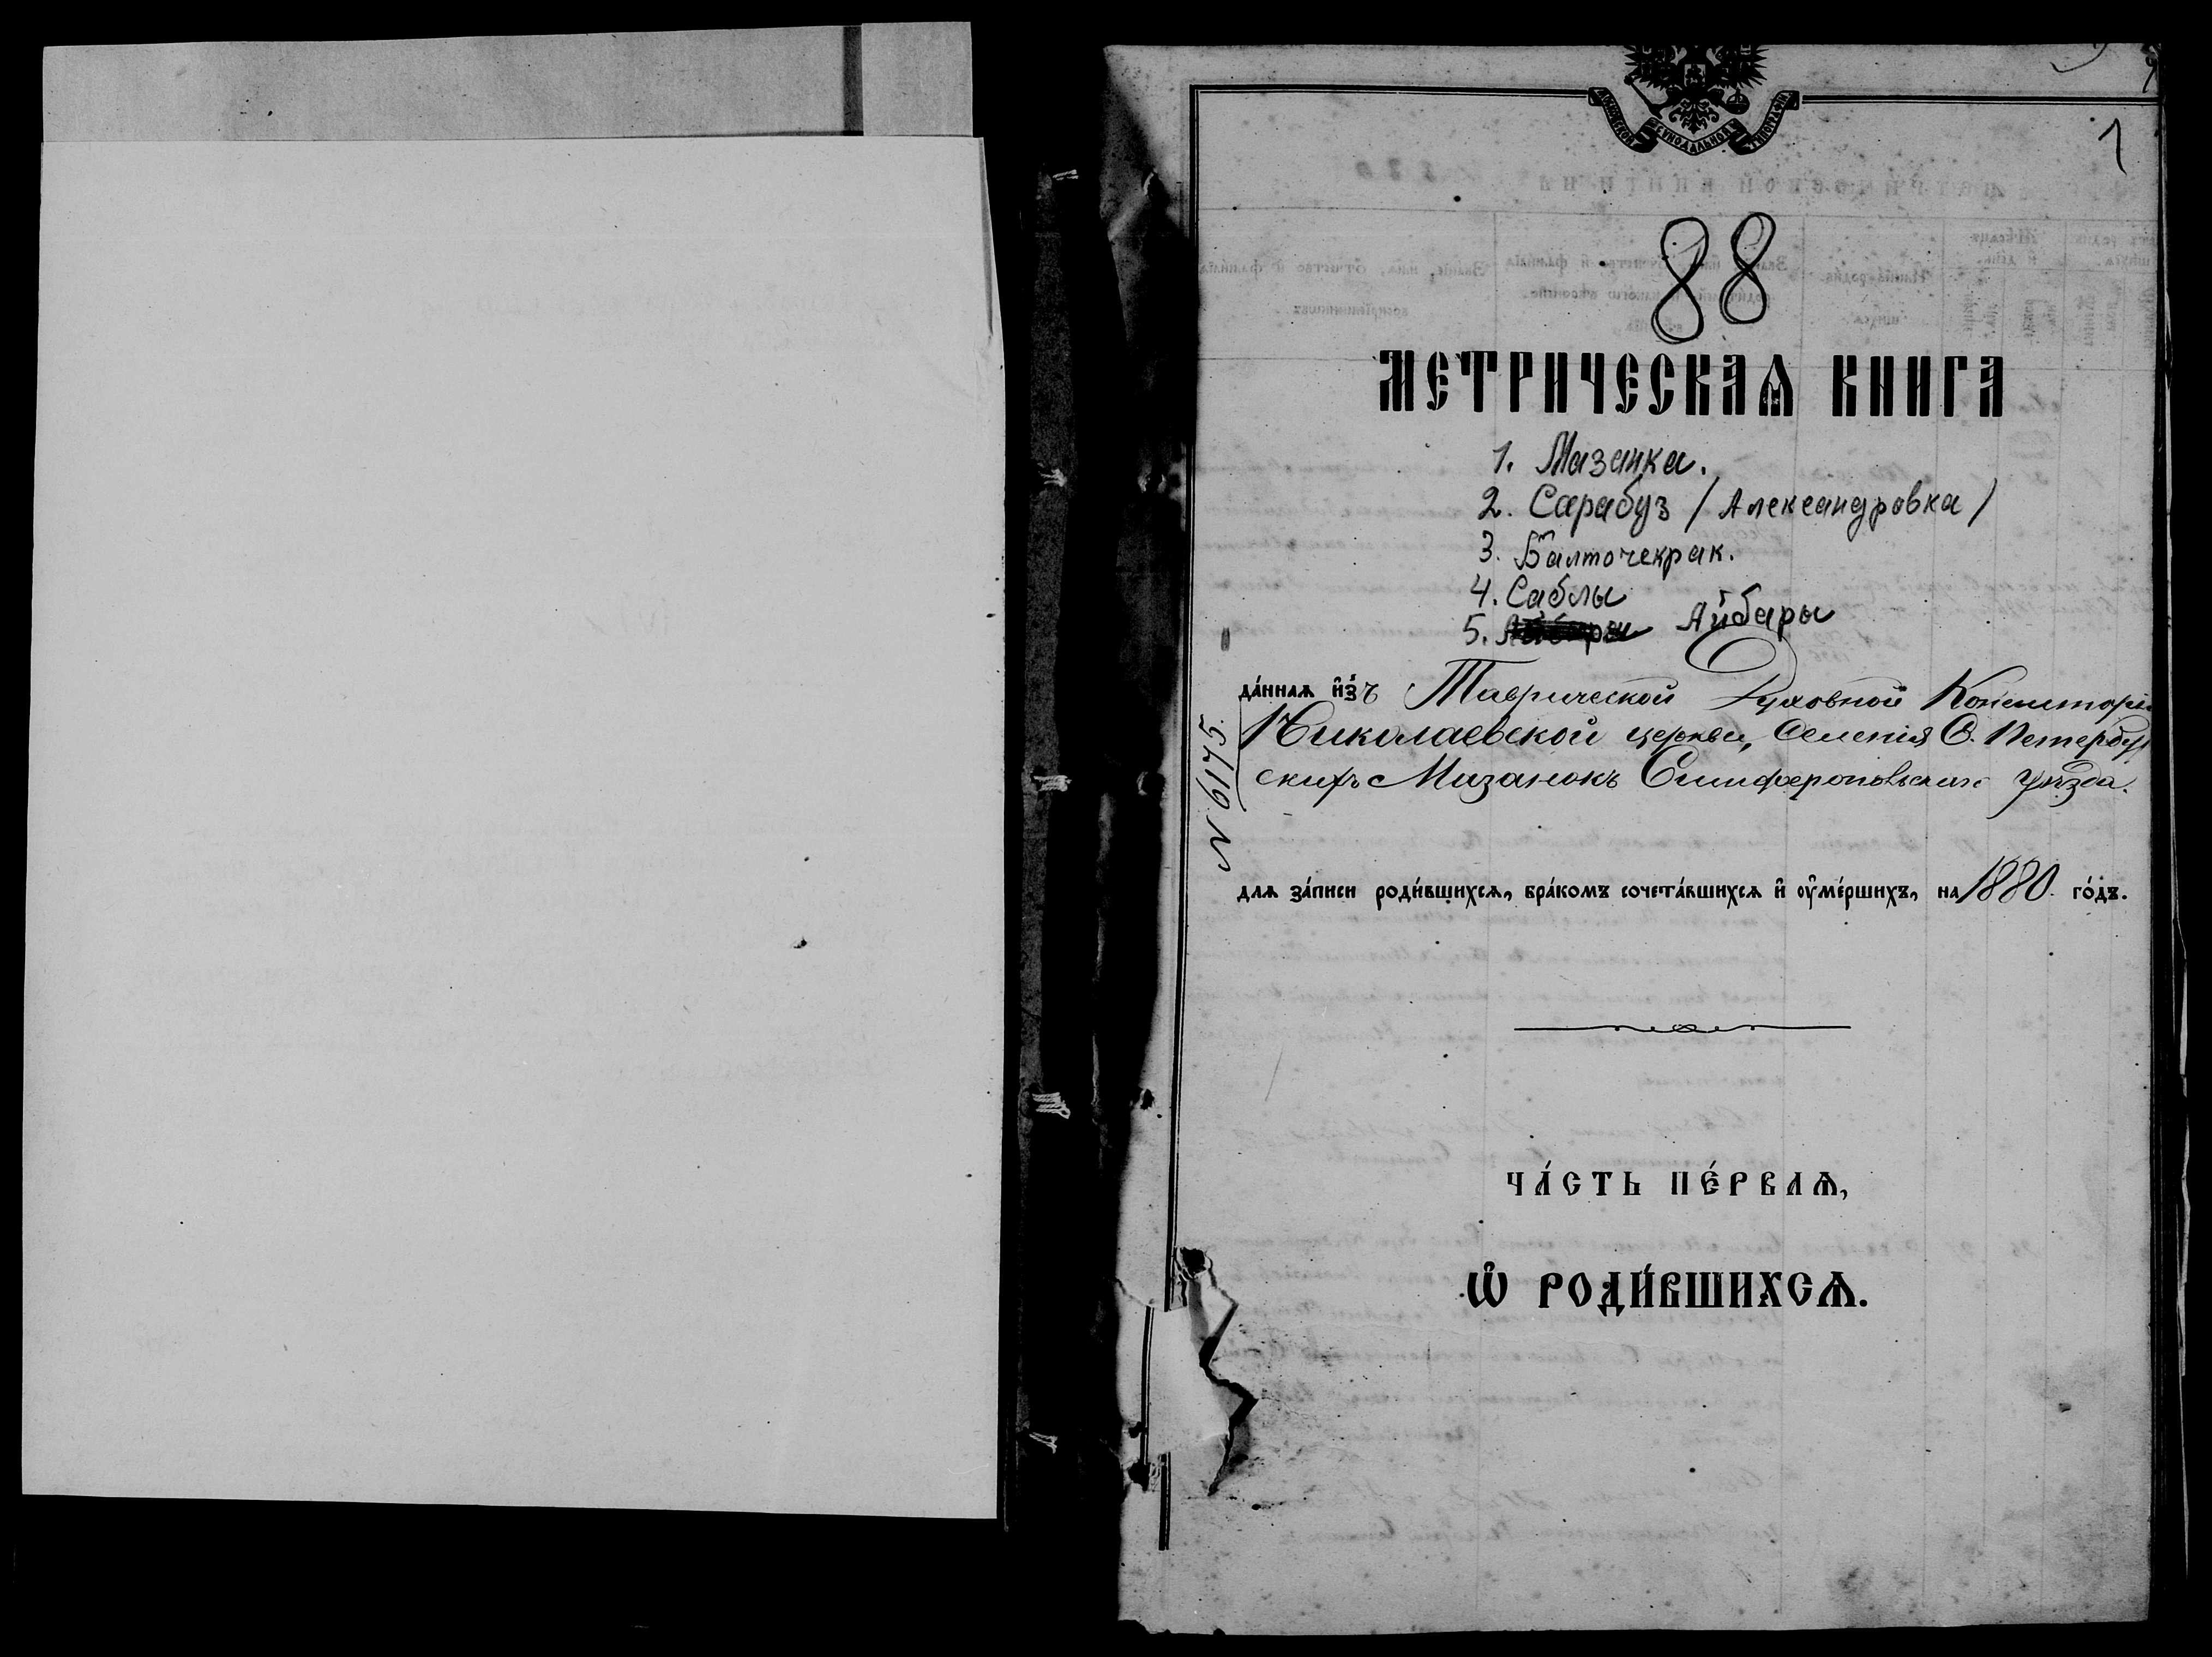 1
МОСКОВСКОЙ СѴНОДАЛЬНОЙ ТИПОГРАФІИ
88
МЕТРИЧЕСКАѦ КНИГА
1. Мазанка.
2. Сарабуз /Александровка/
3. Балточекрак.
4. Саблы
5. Айбары
да́ннаѧ и҆з̾ъ Таврической Духовной Консистори
Николаевской церкви, Селенія С. Петербур
скихъ Мазанокъ Симферопольскаго уѣзда.
N 6195
длѧ за́писи роди́вшихсѧ, бра́комъ сочета́вшихсѧ и҆ оу҆ме́ршихъ, на 1880. го́дъ.
ЧА́СТЬ ПЕ́РВАѦ,
Ѡ҆ РОДИ́ВШИХСѦ.